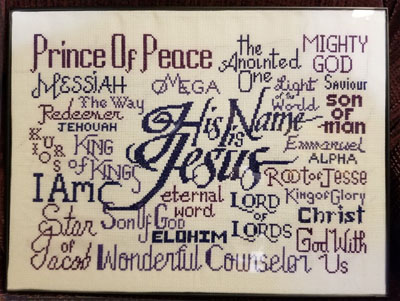 Prince Of Peace
the Anointed One
MIGHTY GOD
MESSIAH
OMEGA
Light of the World
Saviour
The Way
Redeemer
JEHOVAH
son of man
His Name is Jesus
KURIOS
KING of KINGS
Emmanuel
ALPHA
I Am
Root of Jesse
eternal word
LORD of LORDS
King of Glory
Christ
Star of Jacob
Son Of God
ELOHIM
God With Us
Wonderful Counselor